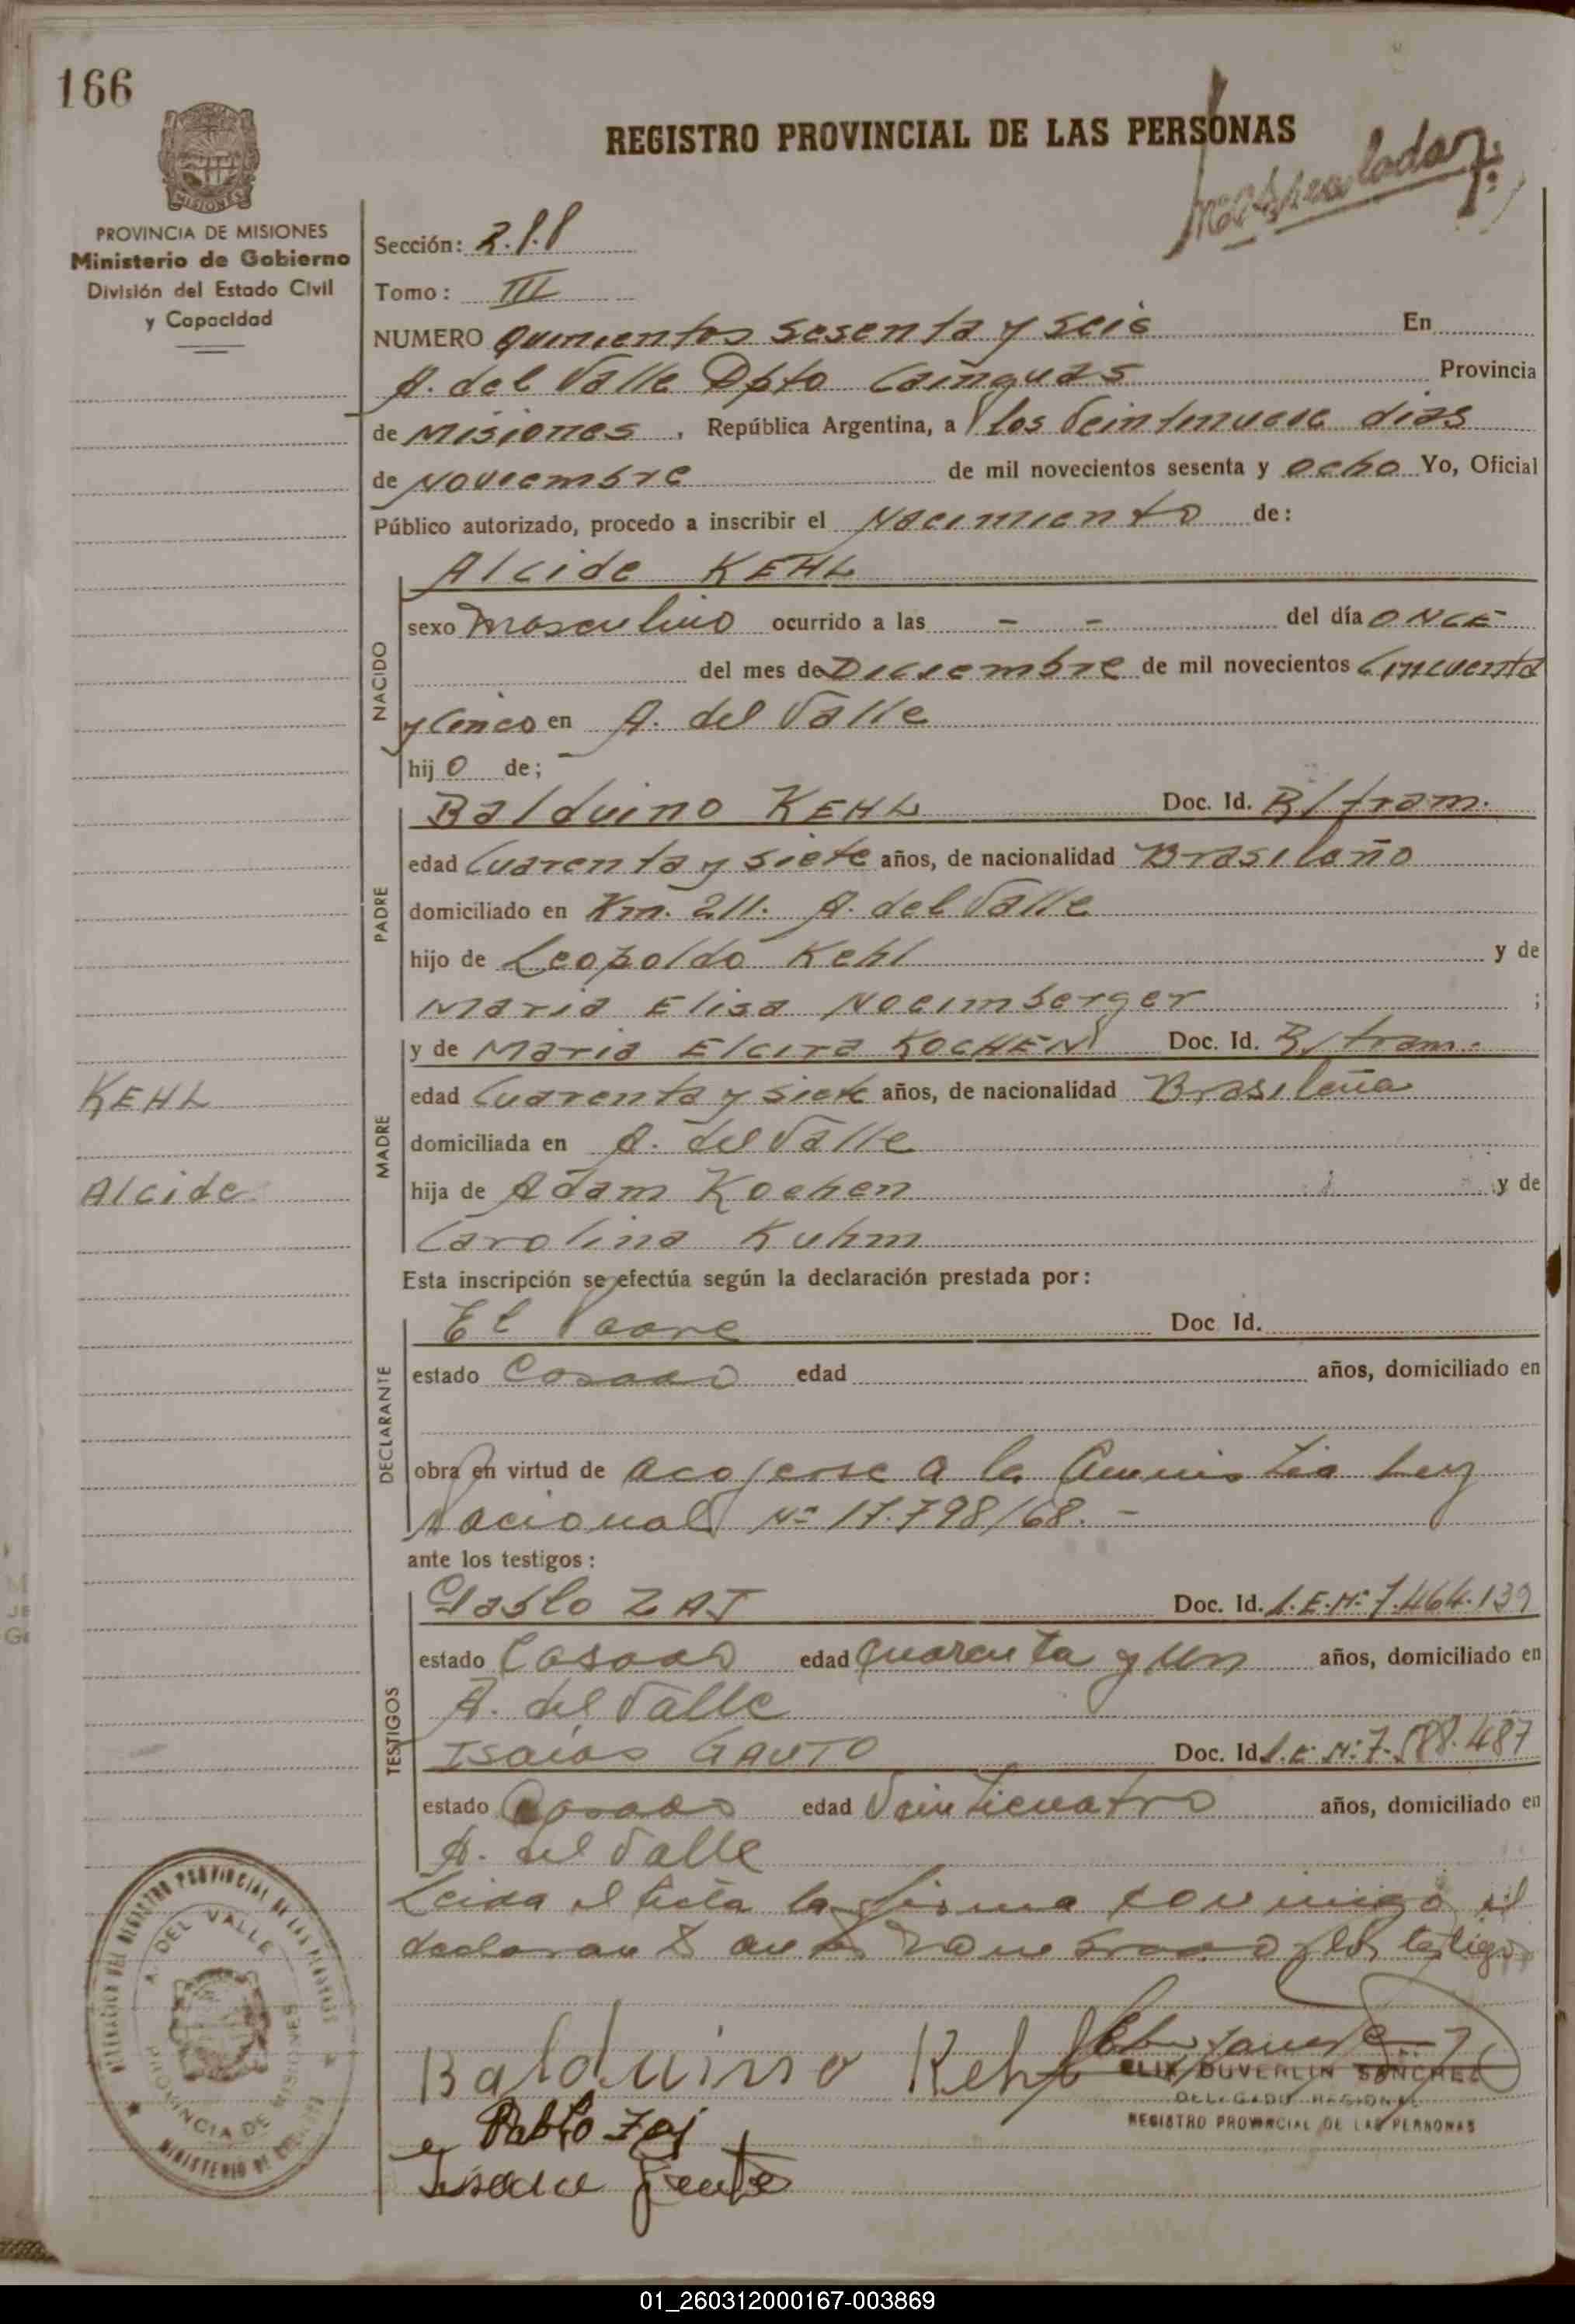 166
REGISTRO PROVINCIAL DE LAS PERSONAS
MISIONES
PROVINCIA DE MISIONES
Ministerio de Gobierno
División del Estado Civil
y Capacidad
Sección: 2.1.8
Tomo: III
NUMERO Quinientos sesenta y seis En
A. del Valle Dpto Cainguas Provincia
de Misiones, República Argentina, a los Veintinueve dias
de Noviembre de mil novecientos sesenta y ocho Yo, Oficial
Público autorizado, procedo a inscribir el Nacimiento de:
NACIDO
Alcide KEHL
sexo Masculino ocurrido a las - - del día ONCE
del mes de Diciembre de mil novecientos Cincuenta
y Cinco en A. del Valle
hij o de; -
PADRE
Balduino KEHL Doc. Id. R/tram.
edad Cuarenta y siete años, de nacionalidad Brasileño
domiciliado en Km. 211. A. del Valle
hijo de Leopoldo Kehl y de
Maria Elisa Noeimberger ;
MADRE
y de Maria Elcira KOCHEN Doc. Id. R/tram.
KEHL
edad Cuarenta y siete años, de nacionalidad Brasileña
domiciliada en A. del Valle
Alcide
hija de Adam Kochen y de
Carolina Kuhm
Esta inscripción se efectúa según la declaración prestada por:
DECLARANTE
El Padre Doc Id.
estado Casado edad años, domiciliado en
obra en virtud de acojerse a la Amnistia Ley
Nacional Nº 17.798/68. -
ante los testigos:
TESTIGOS
Pablo ZAJ Doc. Id. L.E.Nº 7.464.139
estado Casado edad quarenta y un años, domiciliado en
A. del Valle
Isaias GAUTO Doc. Id. L.E.Nº 7.588.487
estado Casado edad Veinticuatro años, domiciliado en
A. del Valle
Leida el acta la firma conmigo el
declarante antes nombrado y los testigos
Balduino Kehl
ELIX DUVERLIN SANCHEZ
DELEGADO REGIONAL
REGISTRO PROVINCIAL DE LAS PERSONAS
Pablo Zaj
A. DEL VALLE
PROVINCIA DE MISIONES
01_260312000167-003869